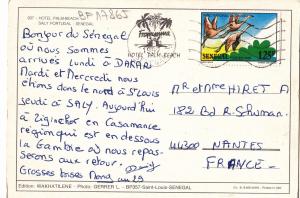 007 - HOTEL PALM-BEACH
SALY PORTUGAL - SENEGAL
BP A7865
Bonjour du Sénégal
où nous sommes
arrivés lundi à DAKAR
Mardi et Mercredi nous
étions dans le nord à St Louis
jeudi à SALY. Aujourd'hui
à Ziguinchor en Casamance
région qui est en dessous
la Gambie où nous repas-
serons au retour.
Grosses bises
Framissima
HOTEL PALM-BEACH
SENEGAL
125F
Mr et Mme HIRET A
182 Bd R. Schuman
44300 NANTES
FRANCE
Edition : WAKHATILENE - Photo : GERRER L. - BP357-Saint-Louis-SENEGAL